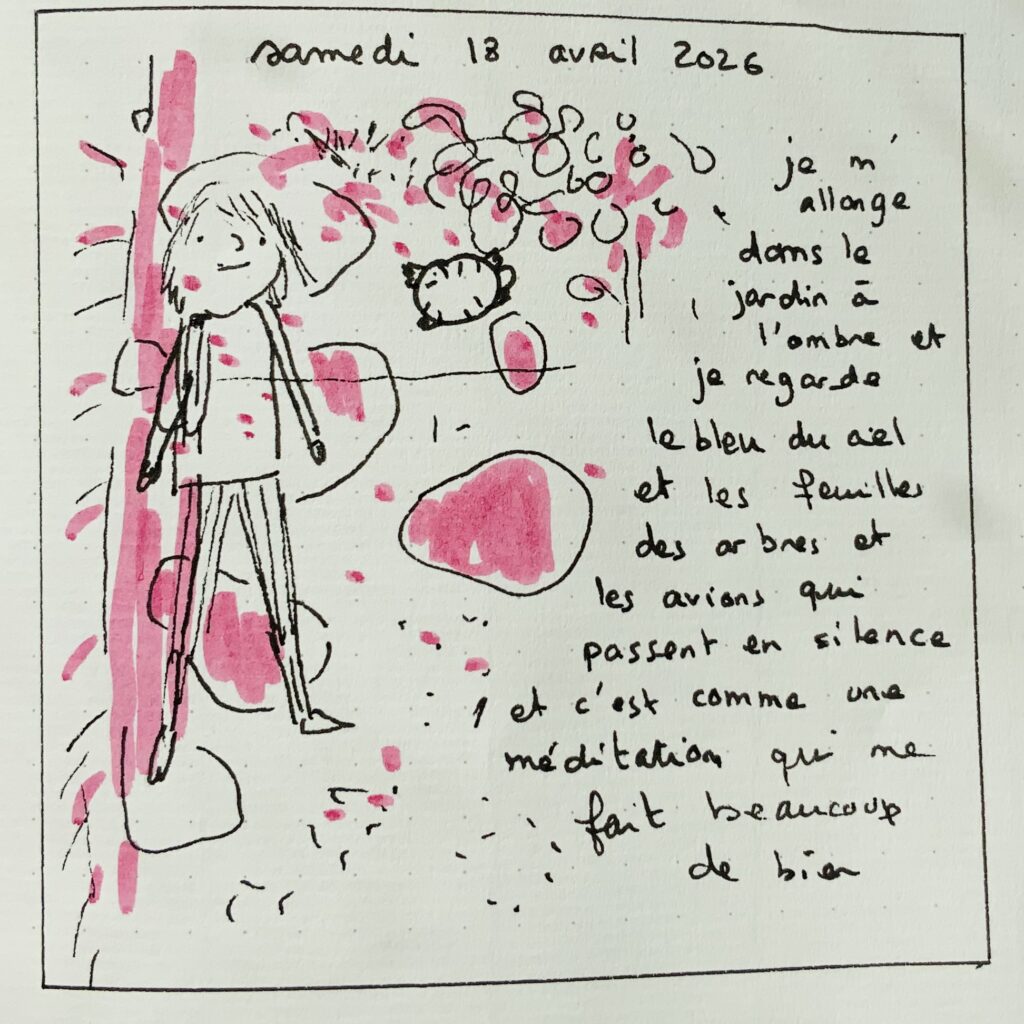 samedi 18 avril 2026
je m'
allonge
dans le
jardin à
l'ombre et
je regarde
le bleu du ciel
et les feuilles
des arbres et
les avions qui
passent en silence
et c'est comme une
méditation qui me
fait beaucoup
de bien